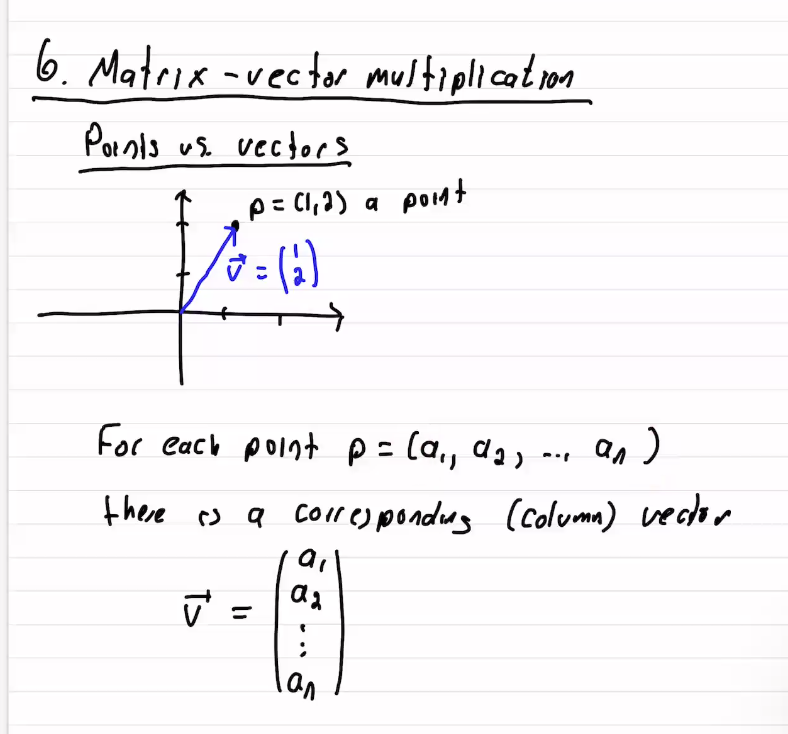 6. Matrix-vector multiplication
Points vs. vectors
p = (1,2) a point
v⃗ = (1 2)
For each point p = (a₁, a₂, ..., aₙ)
there is a corresponding (column) vector
v⃗ = (a₁
a₂
⋮
aₙ)